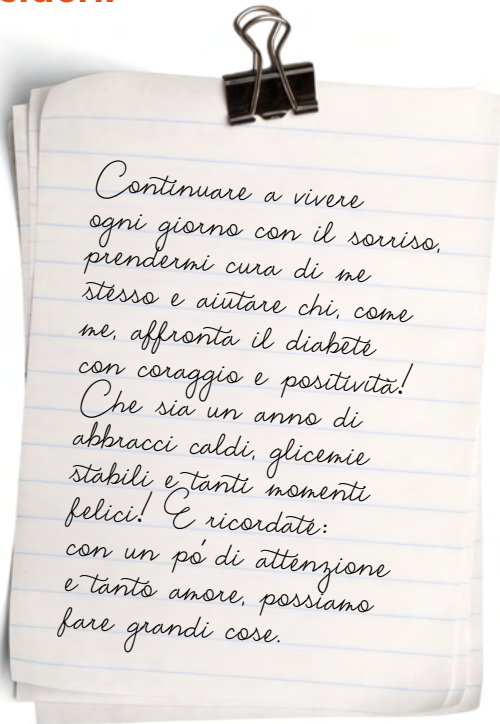 Continuare a vivere
ogni giorno con il sorriso,
prendermi cura di me
stesso e aiutare chi, come
me, affronta il diabete
con coraggio e positività!
Che sia un anno di
abbracci caldi, glicemie
stabili e tanti momenti
felici! E ricordate:
con un pó di attenzione
e tanto amore, possiamo
fare grandi cose.